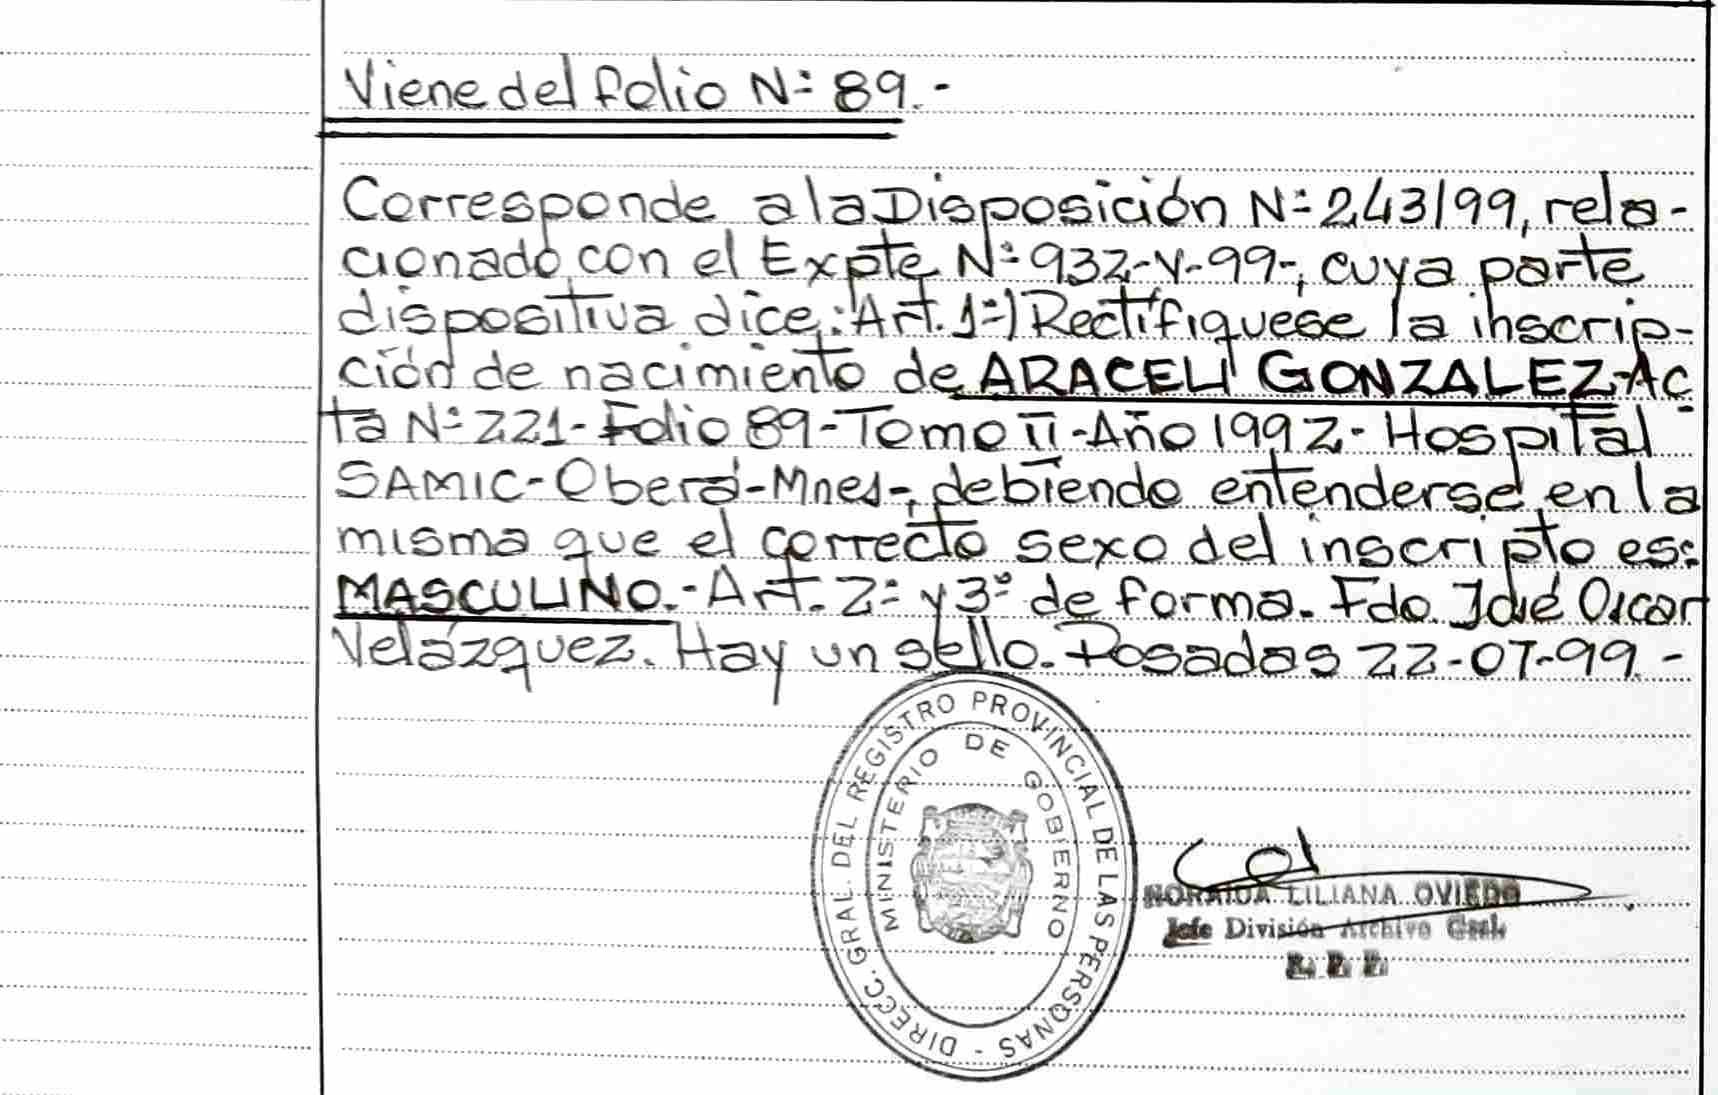 Viene del folio Nº 89.-
Corresponde a la Disposición Nº 243/99, rela-
cionado con el Expte Nº 932-V-99-, cuya parte
dispositiva dice: "Art. 1º) Rectifíquese la inscrip-
ción de nacimiento de ARACELI GONZALEZ-Ac
ta Nº 221-Folio 89-Tomo II-Año 1992-Hospital
SAMIC-Oberá-Mnes-, debiendo entenderse en la
misma que el correcto sexo del inscripto es:
MASCULINO.-Art. 2º y 3º de forma. Fdo. José Oscar
Velázquez. Hay un sello. Posadas 22-07-99.-
DIRECC. GRAL. DEL REGISTRO PROVINCIAL DE LAS PERSONAS -
MINISTERIO DE GOBIERNO
NORAIDA LILIANA OVIEDO
Jefe División Archivo Gral.